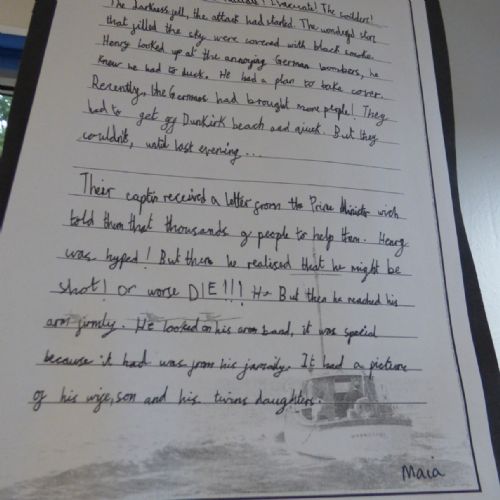 Evacuate! The soldiers!
The darkness fell, the attack had started. The wonderful skies
that filled the city were covered with black smoke.
Henry looked up at the annoying German bombers, he
knew he had to duck. He had a plan to take cover.
Recently, the Germans had brought more people! They
had to get off Dunkirk beach and quick. But they
couldn't, until last evening...
Their captin received a letter from the Prime Minister wich
told them that thousands of people to help them. Henry
was hyped! But then he realised that he might be
shot! Or worse DIE!!! He But then he reached his
arm firmly. He looked on his arm band, it was special
because it had was from his family. It had a picture
of his wife, son and his twins daughters.
Maia